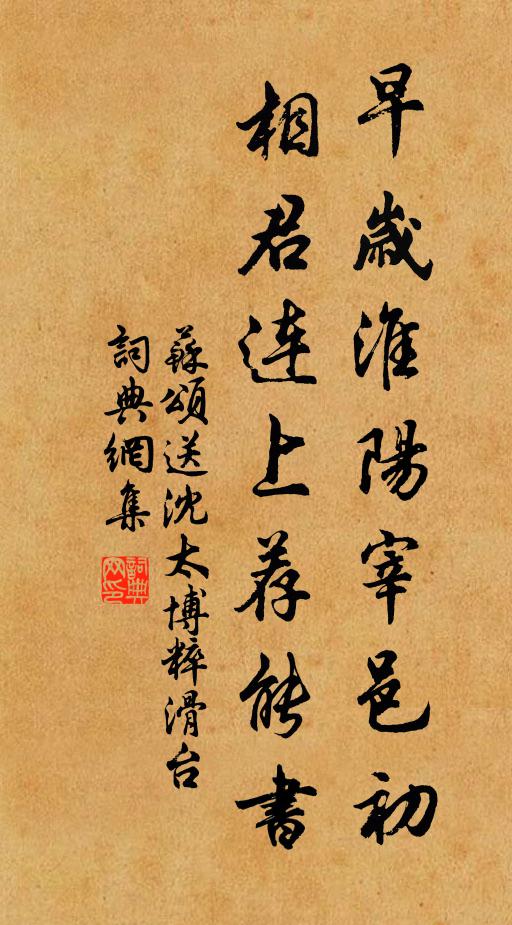 早歲淮陽宰邑初
相君連上荐能書
蘇頌送沈太博粹滑台
詞典網集
詞典網印